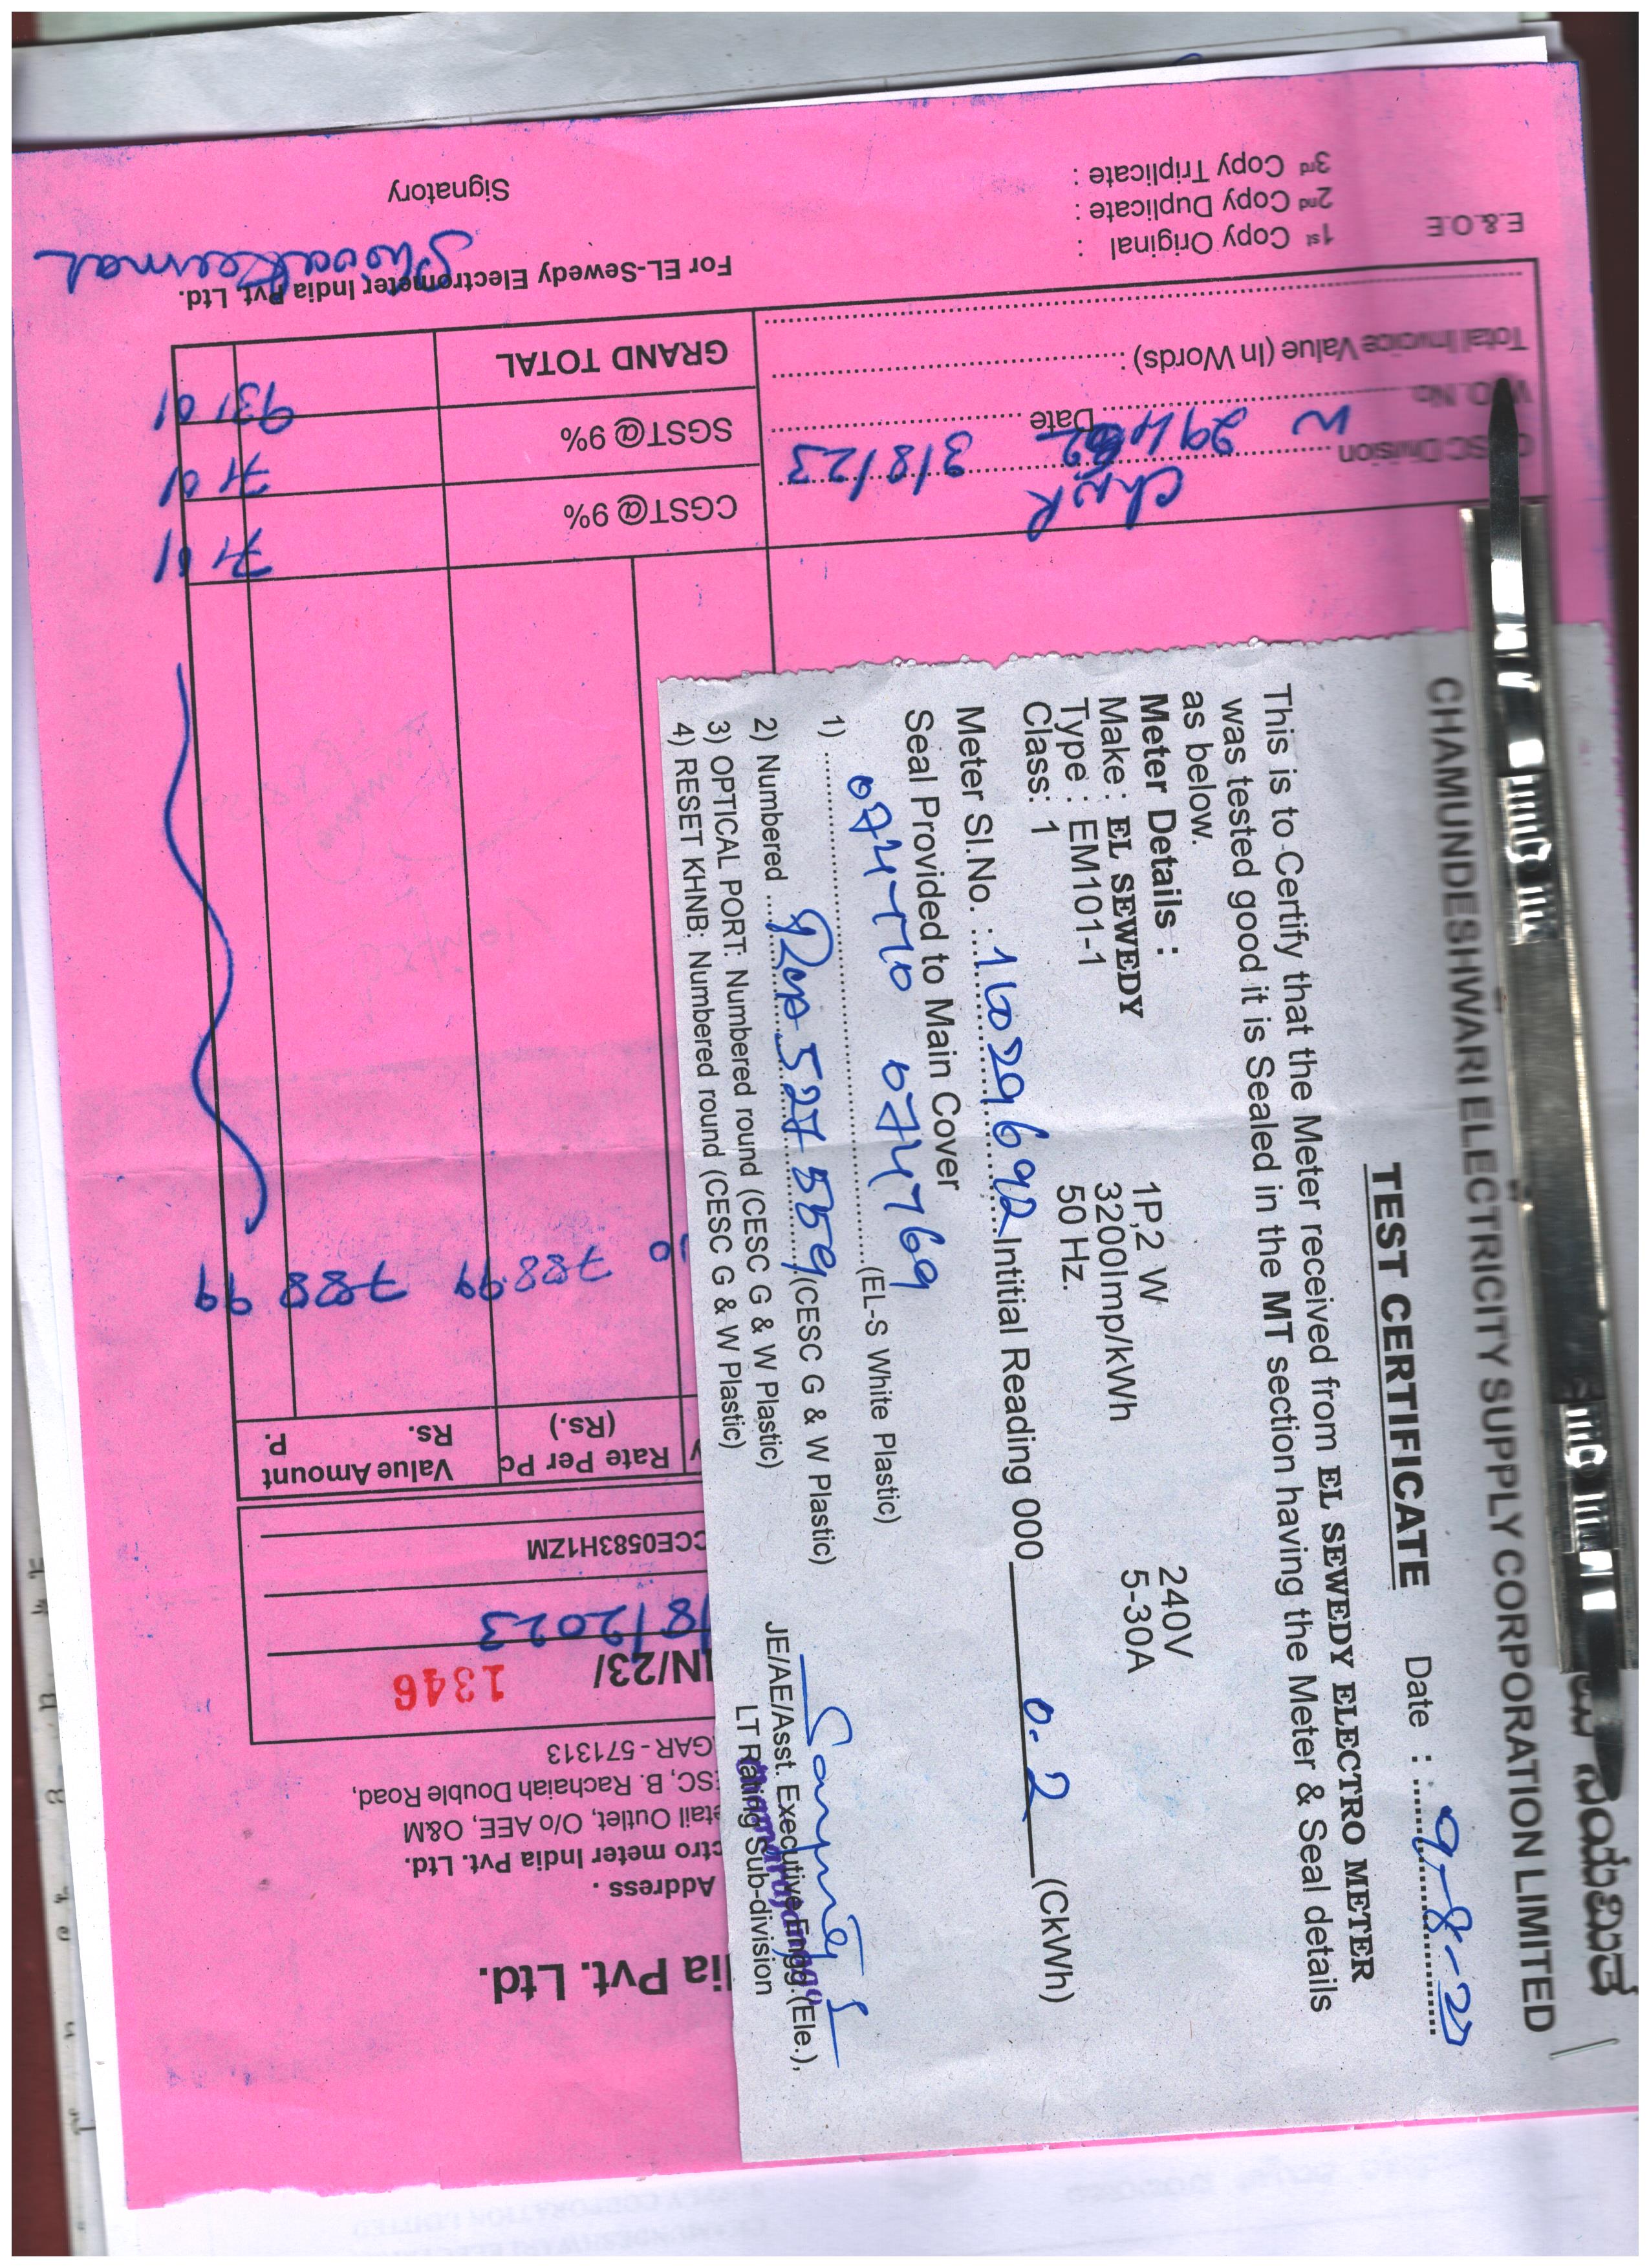 CHAMUNDESHWARI ELECTRICITY SUPPLY CORPORATION LIMITED
TEST CERTIFICATE Date : 9-8-23
This is to Certify that the Meter received from EL SEWEDY ELECTRO METER
was tested good it is Sealed in the MT section having the Meter & Seal details
as below.
Meter Details :
Make : EL SEWEDY 1P,2 W 240V
Type : EM101-1 3200Imp/kWh 5-30A
Class: 1 50 Hz.
Meter Sl.No. : 16029692 Intitial Reading 000 0.2 (CkWh)
Seal Provided to Main Cover
1) 074770 074769 (EL-S White Plastic)
2) Numbered 527559 (CESC G & W Plastic)
3) OPTICAL PORT: Numbered round (CESC G & W Plastic)
4) RESET KHNB: Numbered round (CESC G & W Plastic)
JE/AE/Asst. Executive Engg.(Ele.),
LT Rating Sub-division
ia Pvt. Ltd.
Address .
ctro meter India Pvt. Ltd.
etail Outlet, O/o AEE, O&M
SC, B. Rachaiah Double Road,
GAR - 571313
IN/23/ 1346
/8/2023
CCE0583H1ZM
Rate Per Pc (Rs.) Value Amount Rs. P.
788.99 788 99
CESC Division Chnr CGST@ 9% 71 01
W.O. No. Date 3/8/23 SGST@ 9% 71 01
Total Invoice Value (In Words) : GRAND TOTAL 931 01
For EL-Sewedy Electrometer India Pvt. Ltd.
E.& O.E 1st Copy Original :
2nd Copy Duplicate :
3rd Copy Triplicate :
Signatory